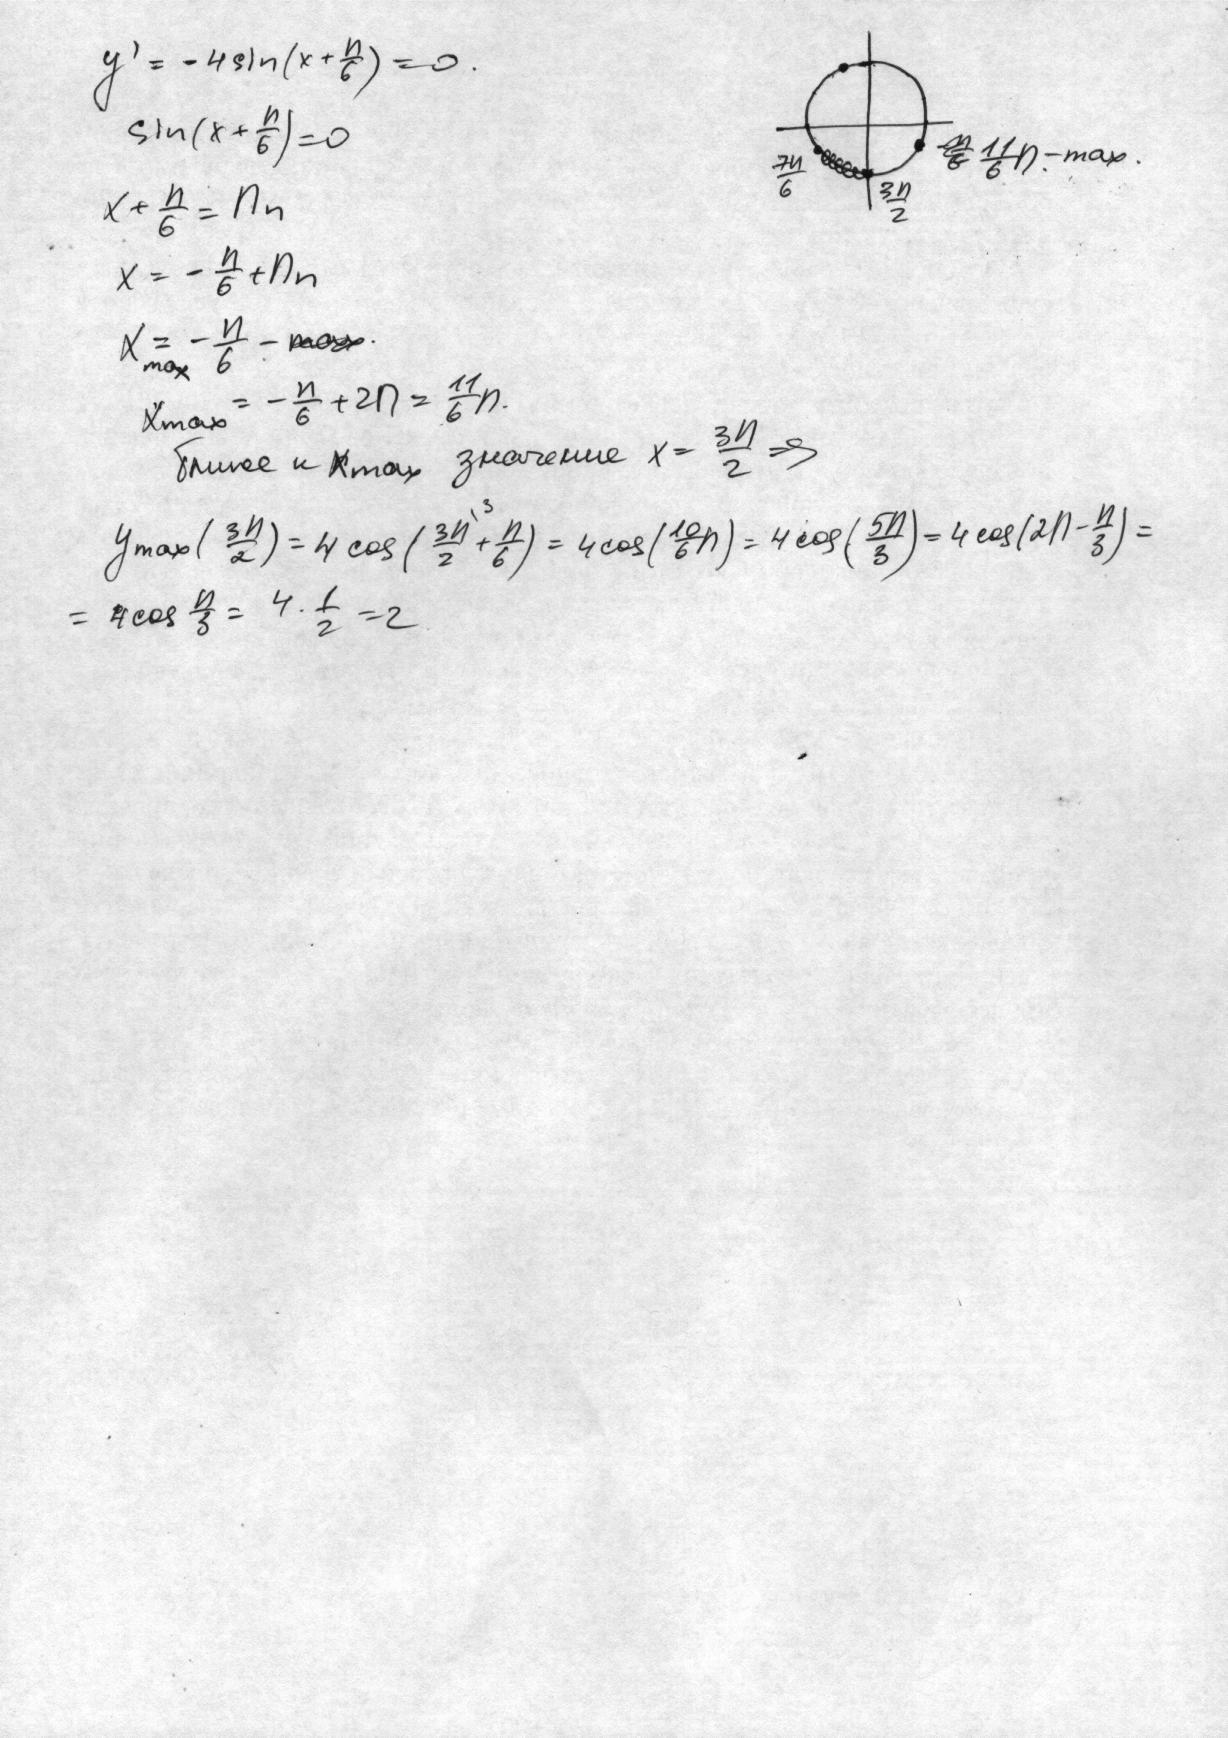 y' = -4sin(x+π/6) = 0.
sin(x+π/6) = 0
x+π/6 = πn
x = -π/6+πn
x max = -π/6 - max.
x max = -π/6+2π = 11/6π.
ближе к x max значение x = 3π/2 ⇒
y max(3π/2) = 4cos(3π/2\3+π/6) = 4cos(10/6π) = 4cos(5π/3) = 4cos(2π-π/3) =
= 4cos π/3 = 4·1/2 = 2
7π/6
3π/2
11/6π - max.